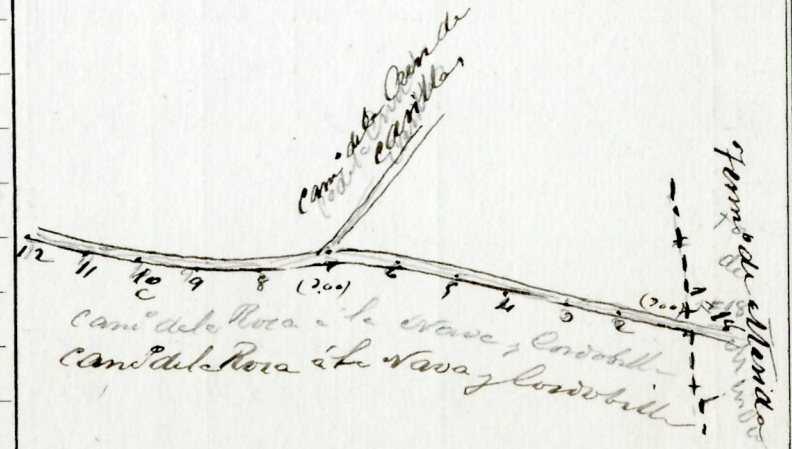 Camº de la
Canillas
Termº de Merida
12 11 10 9 8 (2,00) 6 5 4 3 2 (2,00) 1
C
Camº de la Roca á la Nava y Cordobilla
Camº de la Roca á la Nava y Cordobilla